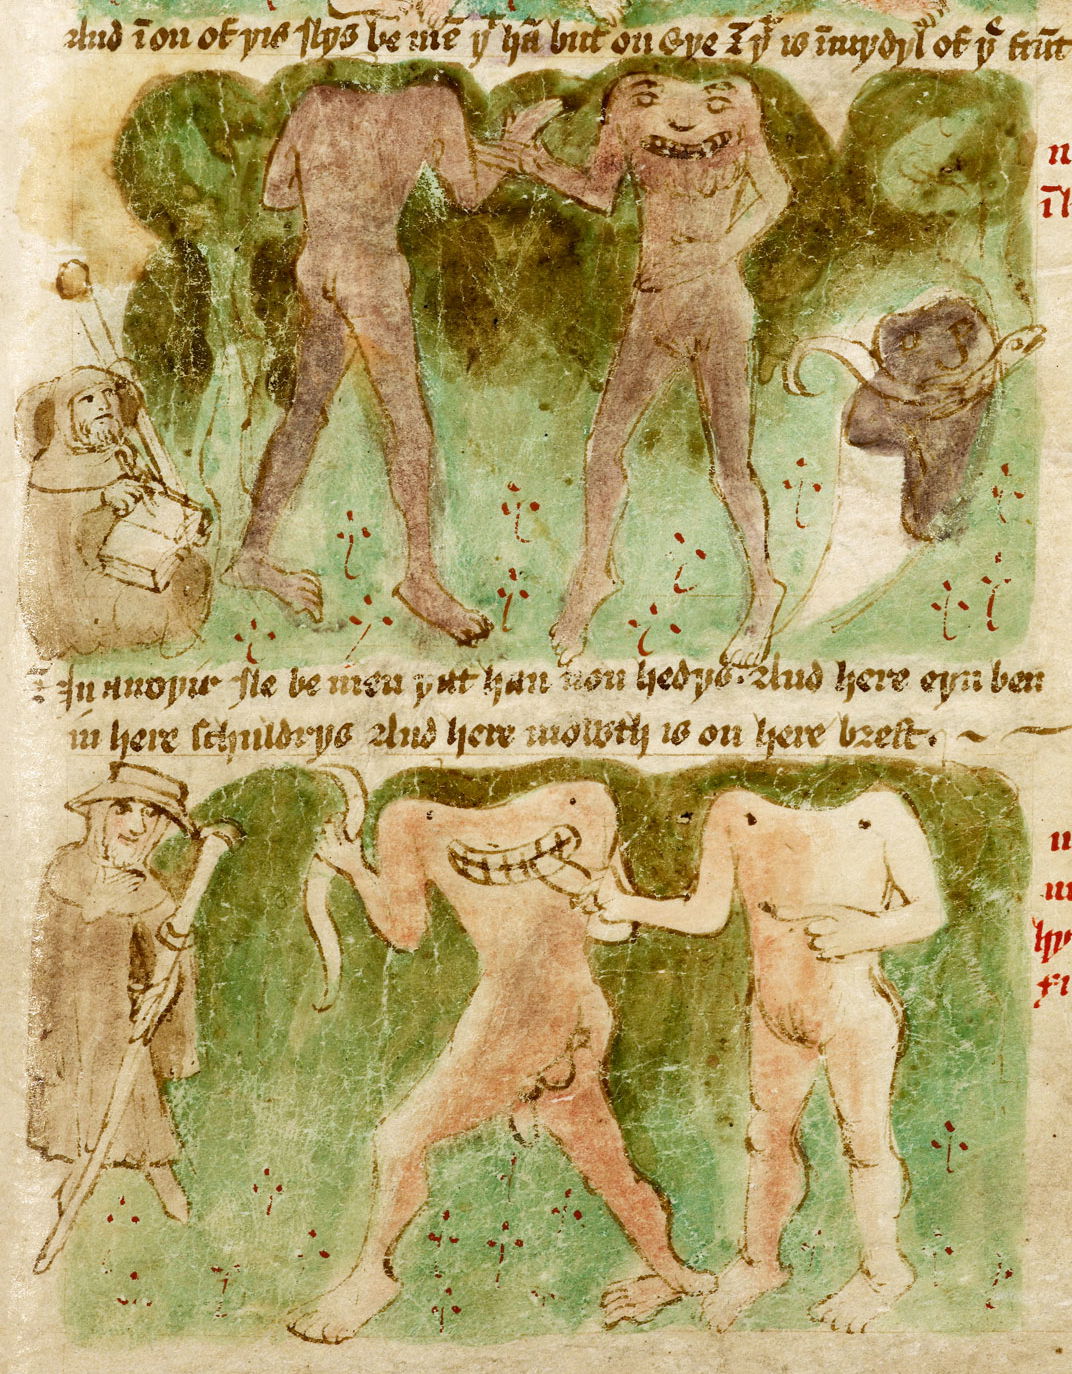 And ī on of þis Ilys be mē þt hā but on Eye & þt is ī mydyl of þe frūt
In anoþir Ile be men þat han non hedys. And here eyn ben
in here schuldrys And here mowth is on here brest.
n
īl
n
m
hy
fi